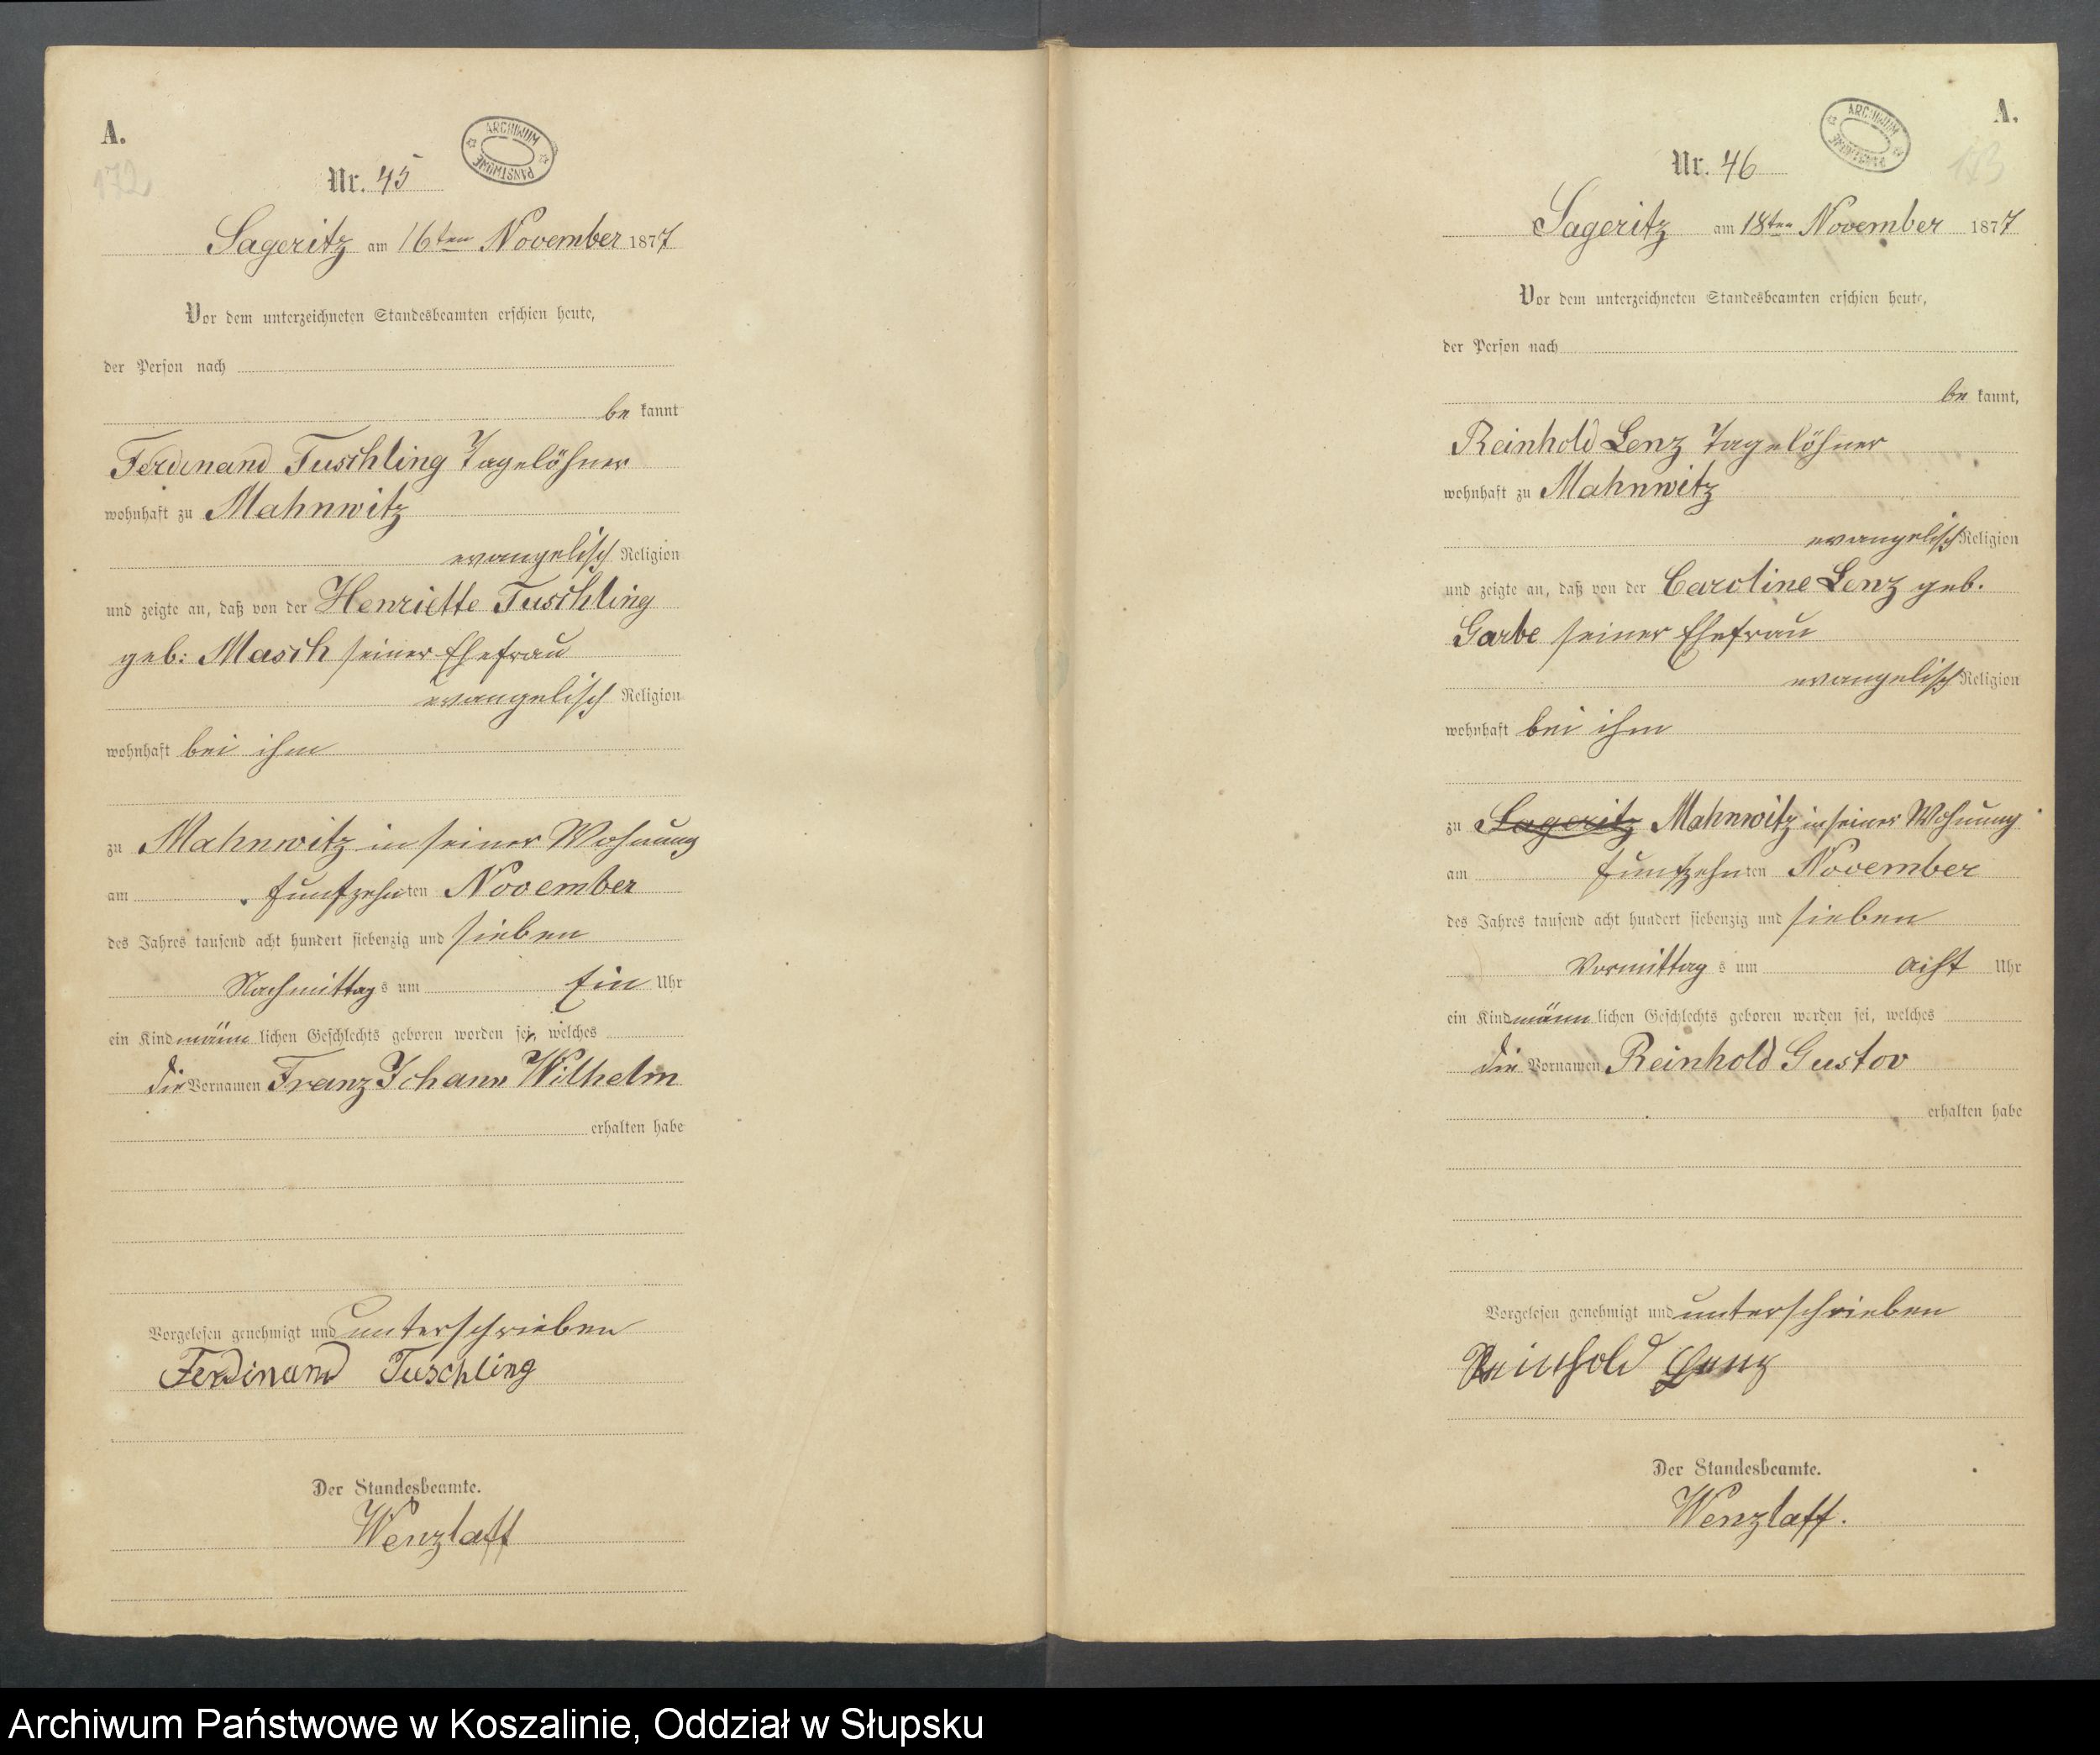 A.
172
Nr. 45
ARCHIWUM PAŃSTWOWE
Sageritz am 16ten November 1877
Vor dem unterzeichneten Standesbeamten erschien heute,
der Person nach
be kannt
Ferdinand Tuschling Tagelöhner
wohnhaft zu Mahnwitz
evangelisch Religion
und zeigte an, daß von der Henriette Tuschling
geb: Masch seiner Ehefrau
evangelisch Religion
wohnhaft bei ihm
zu Mahnwitz in seiner Wohnung
am funfzehnten November
des Jahres tausend acht hundert siebenzig und sieben
Nachmittags um Ein Uhr
ein Kind männlichen Geschlechts geboren worden sei, welches
die Vornamen Franz Johann Wilhelm
erhalten habe
Vorgelesen genehmigt und unterschrieben
Ferdinand Tuschling
Der Standesbeamte.
Wenzlaff
A.
173
Nr. 46
ARCHIWUM PAŃSTWOWE
Sageritz am 18ten November 1877
Vor dem unterzeichneten Standesbeamten erschien heute,
der Person nach
be kannt,
Reinhold Lenz Tagelöhner
wohnhaft zu Mahnwitz
evangelisch Religion
und zeigte an, daß von der Caroline Lenz geb.
Garbe seiner Ehefrau
evangelisch Religion
wohnhaft bei ihm
zu Sageritz Mahnwitz in seiner Wohnung
am funfzehnten November
des Jahres tausend acht hundert siebenzig und sieben
Vormittags um acht Uhr
ein Kind männlichen Geschlechts geboren worden sei, welches
die Vornamen Reinhold Gustav
erhalten habe
Vorgelesen genehmigt und unterschrieben
Reinhold Lenz
Der Standesbeamte.
Wenzlaff.
Archiwum Państwowe w Koszalinie, Oddział w Słupsku